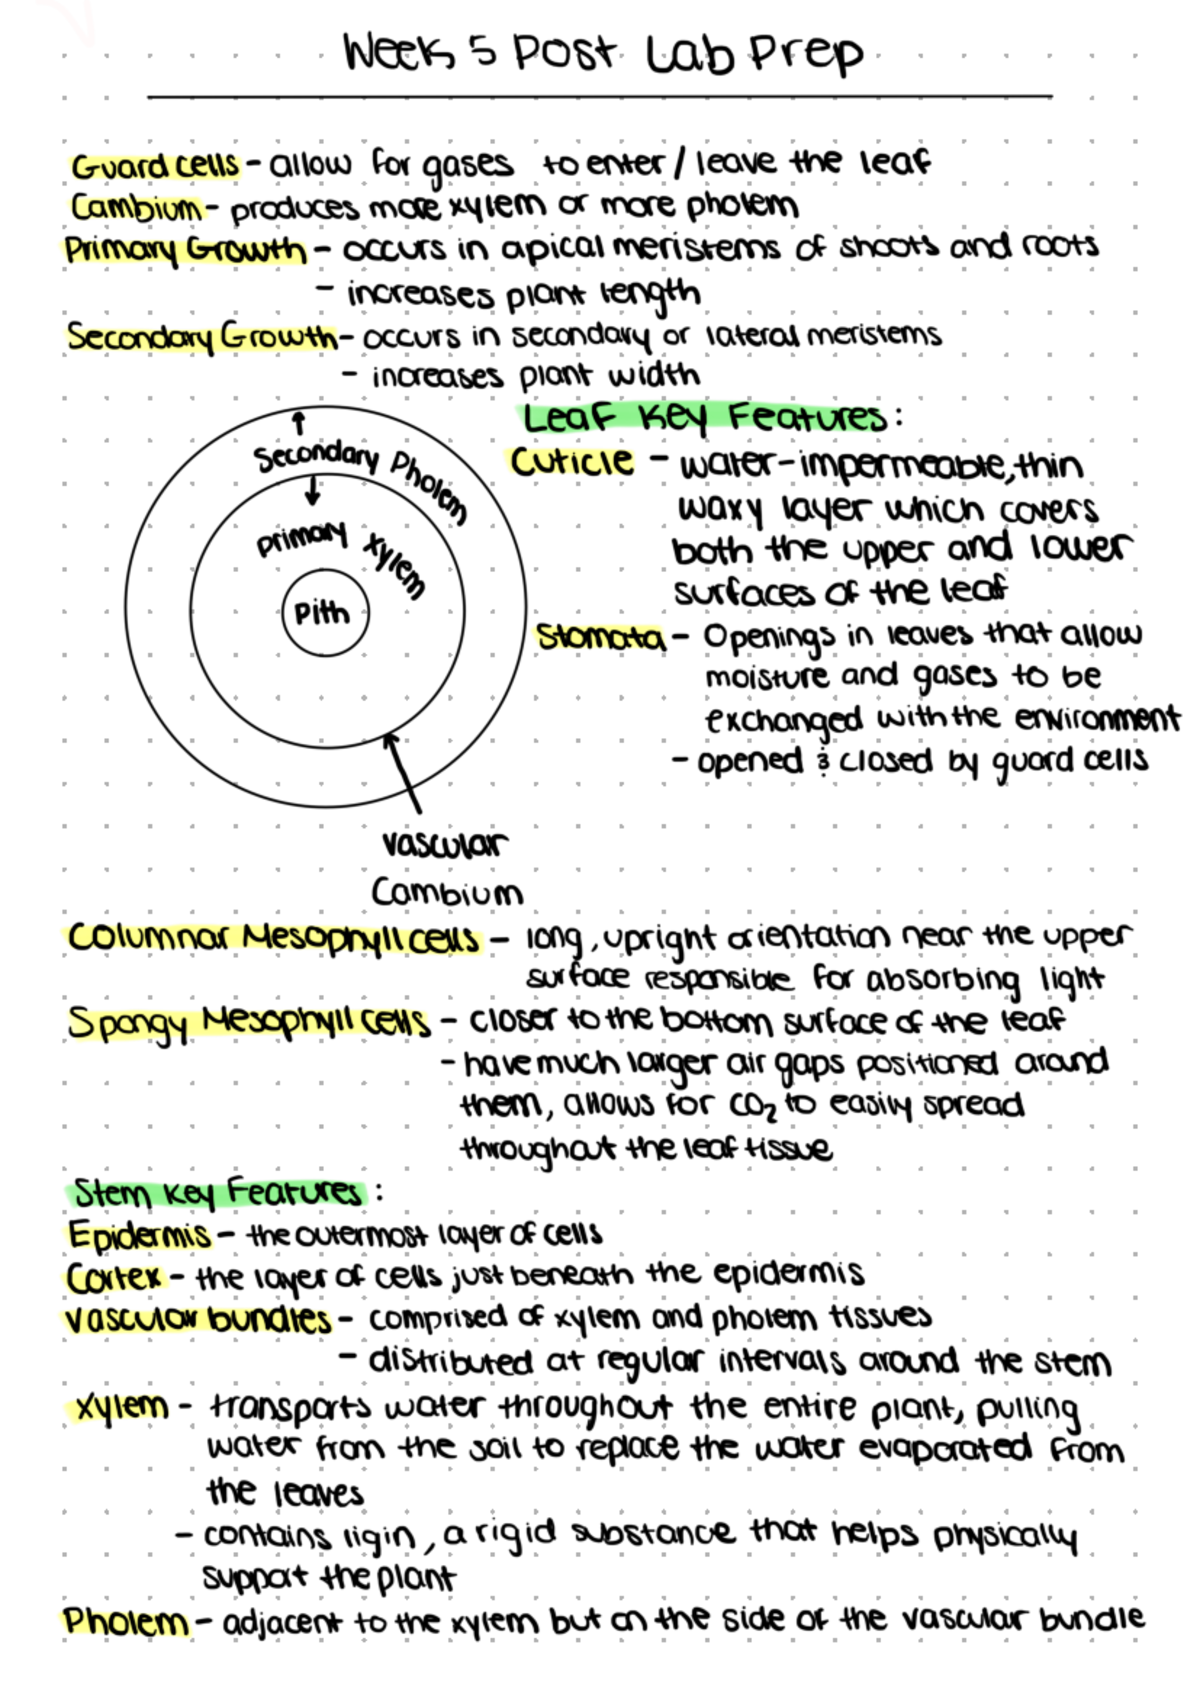 Week 5 Post Lab Prep
Guard cells - allow for gases to enter / leave the leaf
Cambium - produces more xylem or more pholem
Primary Growth - occurs in apical meristems of shoots and roots
- increases plant length
Secondary Growth - occurs in secondary or lateral meristems
- increases plant width
Secondary Pholem
Primary Xylem
Pith
Vascular
Cambium
Leaf Key Features:
Cuticle - water-impermeable, thin
waxy layer which covers
both the upper and lower
surfaces of the leaf
Stomata - Openings in leaves that allow
moisture and gases to be
exchanged with the environment
- opened & closed by guard cells
Columnar Mesophyll cells - long, upright orientation near the upper
surface responsible for absorbing light
Spongy Mesophyll cells - closer to the bottom surface of the leaf
- have much larger air gaps positioned around
them, allows for CO₂ to easily spread
throughout the leaf tissue
Stem Key Features:
Epidermis - the outermost layer of cells
Cortex - the layer of cells just beneath the epidermis
Vascular bundles - comprised of xylem and pholem tissues
- distributed at regular intervals around the stem
Xylem - transports water throughout the entire plant, pulling
water from the soil to replace the water evaporated from
the leaves
- contains ligin, a rigid substance that helps physically
support the plant
Pholem - adjacent to the xylem but on the side of the vascular bundle